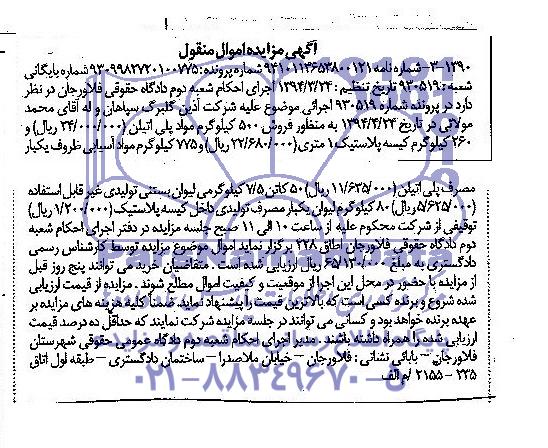 آگهی مزایده اموال منقول
۱۳۹۰-۳- شماره نامه: ۹۴۱۰۱۱۳۶۵۳۸۰۰۱۲۱ شماره پرونده: ۹۳۰۹۹۸۳۷۲۰۱۰۰۷۷۵ شماره بایگانی
شعبه: ۹۳۰۵۱۹ تاریخ تنظیم: ۱۳۹۴/۳/۲۴ اجرای احکام شعبه دوم دادگاه حقوقی فلاورجان در نظر
دارد در پرونده شماره ۹۳۰۵۱۹ اجرائی موضوع علیه شرکت آذین گلبرگ سپاهان و له آقای محمد
مولائی در تاریخ ۱۳۹۴/۴/۲۳ به منظور فروش ۵۰۰ کیلوگرم مواد پلی اتیلن (۳۴/۰۰۰/۰۰۰ ریال) و
۲۶۰ کیلوگرم کیسه پلاستیک ۱ متری (۲۲/۶۸۰/۰۰۰ ریال) و ۷۷۵ کیلوگرم مواد آسیابی ظروف یکبار
مصرف پلی اتیلن (۱۱/۶۲۵/۰۰۰ ریال) ۵۰ کاتن ۷/۵ کیلوگرمی لیوان بستنی تولیدی غیر قابل استفاده
(۵/۶۲۵/۰۰۰ ریال) ۸۰ کیلوگرم لیوان یکبار مصرف تولیدی داخل کیسه پلاستیک (۱/۲۰۰/۰۰۰ ریال)
توقیفی از شرکت محکوم علیه از ساعت ۱۰ الی ۱۱ صبح جلسه مزایده در دفتر اجرای احکام شعبه
دوم دادگاه حقوقی فلاورجان اطاق ۲۲۸ برگزار نماید اموال موضوع مزایده توسط کارشناس رسمی
دادگستری به مبلغ ۶۵/۱۳۰/۰۰۰ ریال ارزیابی شده است. متقاضیان خرید می توانند پنج روز قبل
از مزایده با حضور در محل این اجرا از موقعیت و کیفیت اموال مطلع شوند. مزایده از قیمت ارزیابی
شده شروع و برنده کسی است که بالاترین قیمت را پیشنهاد نماید. ضمناً کلیه هزینه های مزایده بر
عهده برنده خواهد بود و کسانی می توانند در جلسه مزایده شرکت نمایند که حداقل ده درصد قیمت
ارزیابی شده را همراه داشته باشند. مدیر اجرای احکام شعبه دوم دادگاه عمومی حقوقی شهرستان
فلاورجان – بابائی نشانی: فلاورجان – خیابان ملاصدرا – ساختمان دادگستری – طبقه اول اتاق
۲۲۵ – ۲۱۵۵ /م الف
۰۲۱-۸۸۳۴۹۶۷۰